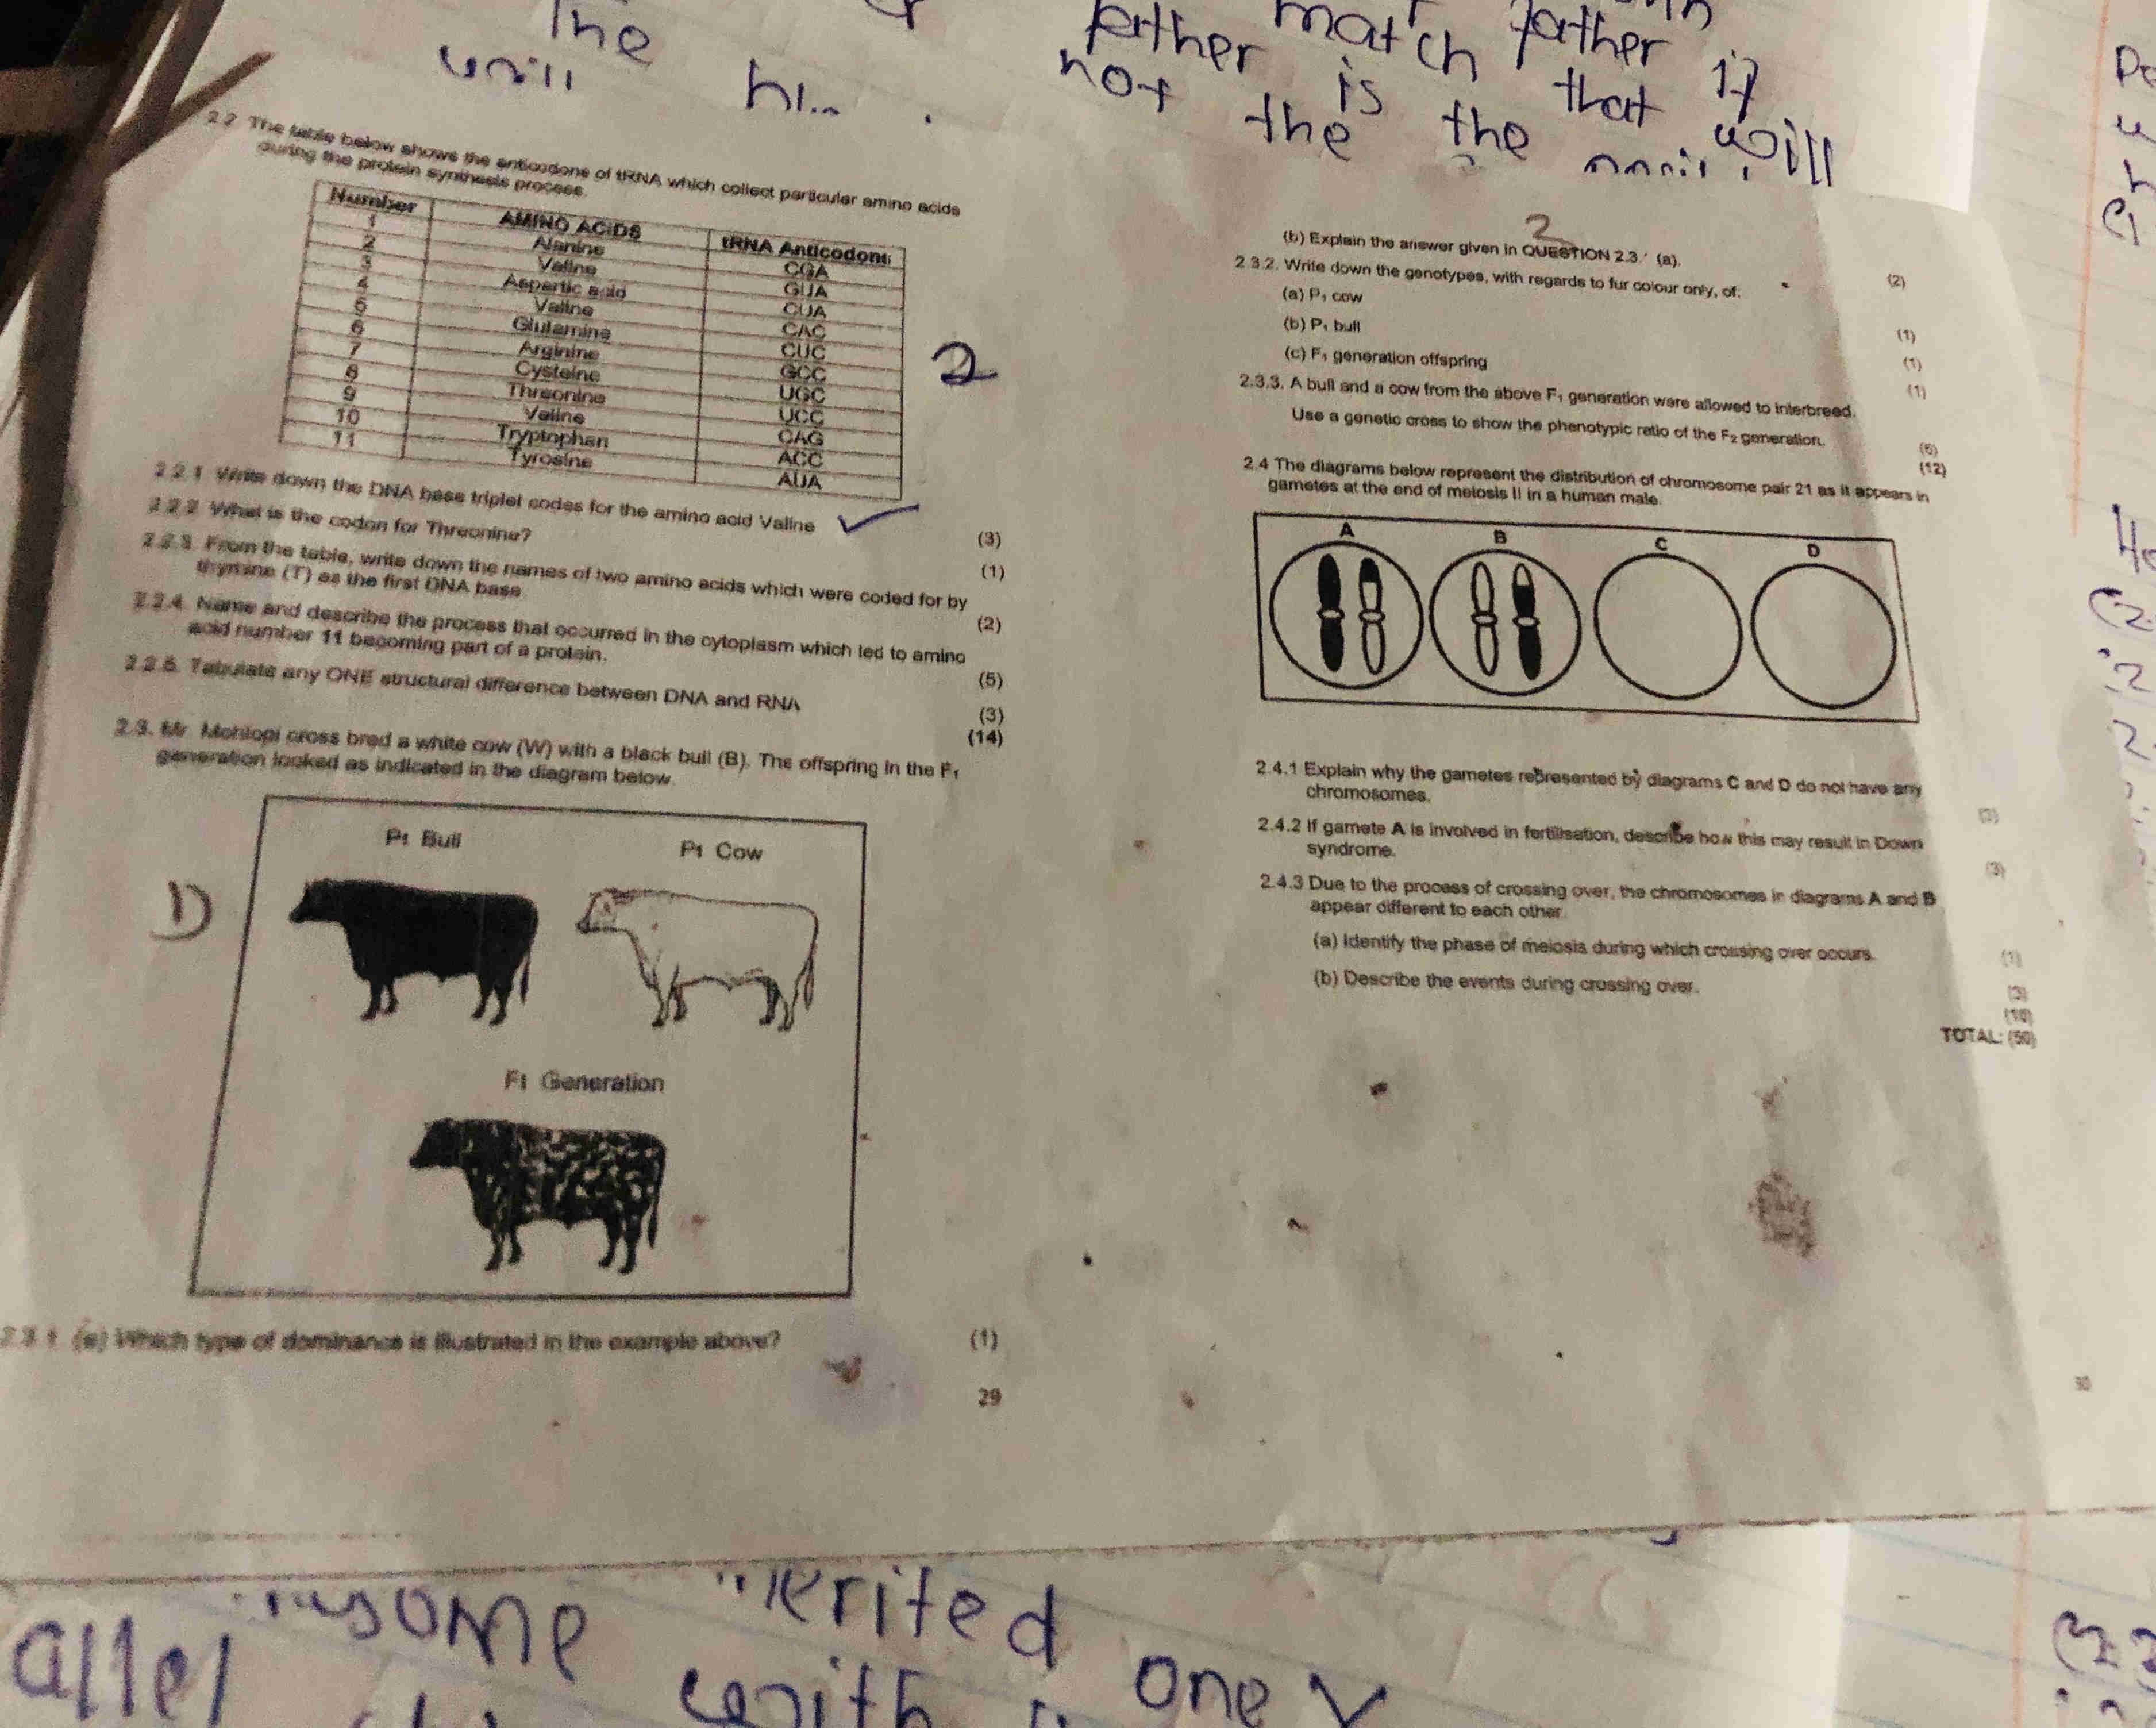 The
will
hi..
father match father if
not is that will
the the
2.2 The table below shows the anticodons of tRNA which collect particular amino acids
during the protein synthesis process.
Number AMINO ACIDS tRNA Anticodons
1 Alanine CGA
2 Valine GUA
3 Aspartic acid CUA
4 Valine CAC
5 Glutamine CUC
6 Arginine GCC
7 Cysteine UGC
8 Threonine UCC
9 Valine CAG
10 Tryptophan ACC
11 Tyrosine AUA
2
2.2.1 Write down the DNA base triplet codes for the amino acid Valine (3)
2.2.2 What is the codon for Threonine? (1)
2.2.3 From the table, write down the names of two amino acids which were coded for by
thymine (T) as the first DNA base (2)
2.2.4 Name and describe the process that occurred in the cytoplasm which led to amino
acid number 11 becoming part of a protein. (5)
2.2.5 Tabulate any ONE structural difference between DNA and RNA (3)
(14)
2.3. Mr Mohlopi cross bred a white cow (W) with a black bull (B). The offspring in the F1
generation looked as indicated in the diagram below.
1)
P1 Bull
P1 Cow
F1 Generation
2.3.1 (a) Which type of dominance is illustrated in the example above? (1)
29
2
(b) Explain the answer given in QUESTION 2.3.' (a). (2)
2.3.2. Write down the genotypes, with regards to fur colour only, of:
(a) P1 cow (1)
(b) P1 bull (1)
(c) F1 generation offspring (1)
2.3.3. A bull and a cow from the above F1 generation were allowed to interbreed.
Use a genetic cross to show the phenotypic ratio of the F2 generation. (6)
(12)
2.4 The diagrams below represent the distribution of chromosome pair 21 as it appears in
gametes at the end of meiosis II in a human male.
A B C D
2.4.1 Explain why the gametes represented by diagrams C and D do not have any
chromosomes. (3)
2.4.2 If gamete A is involved in fertilisation, describe how this may result in Down
syndrome. (3)
2.4.3 Due to the process of crossing over, the chromosomes in diagrams A and B
appear different to each other.
(a) Identify the phase of meiosis during which crossing over occurs. (1)
(b) Describe the events during crossing over. (3)
(10)
TOTAL: (50)
30
allel
with
one